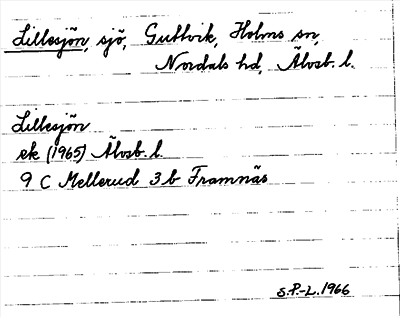 Lillesjön, sjö, Guttvik, Holms sn,
Nordals hd, Älvsb. l.
Lillesjön
ek (1965) Älvsb. l.
9 C Mellerud 3 b Framnäs
S.P.-L. 1966